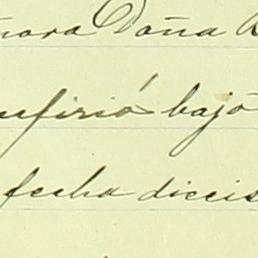 ñora Doña
nfirió bajó
fecha diecis